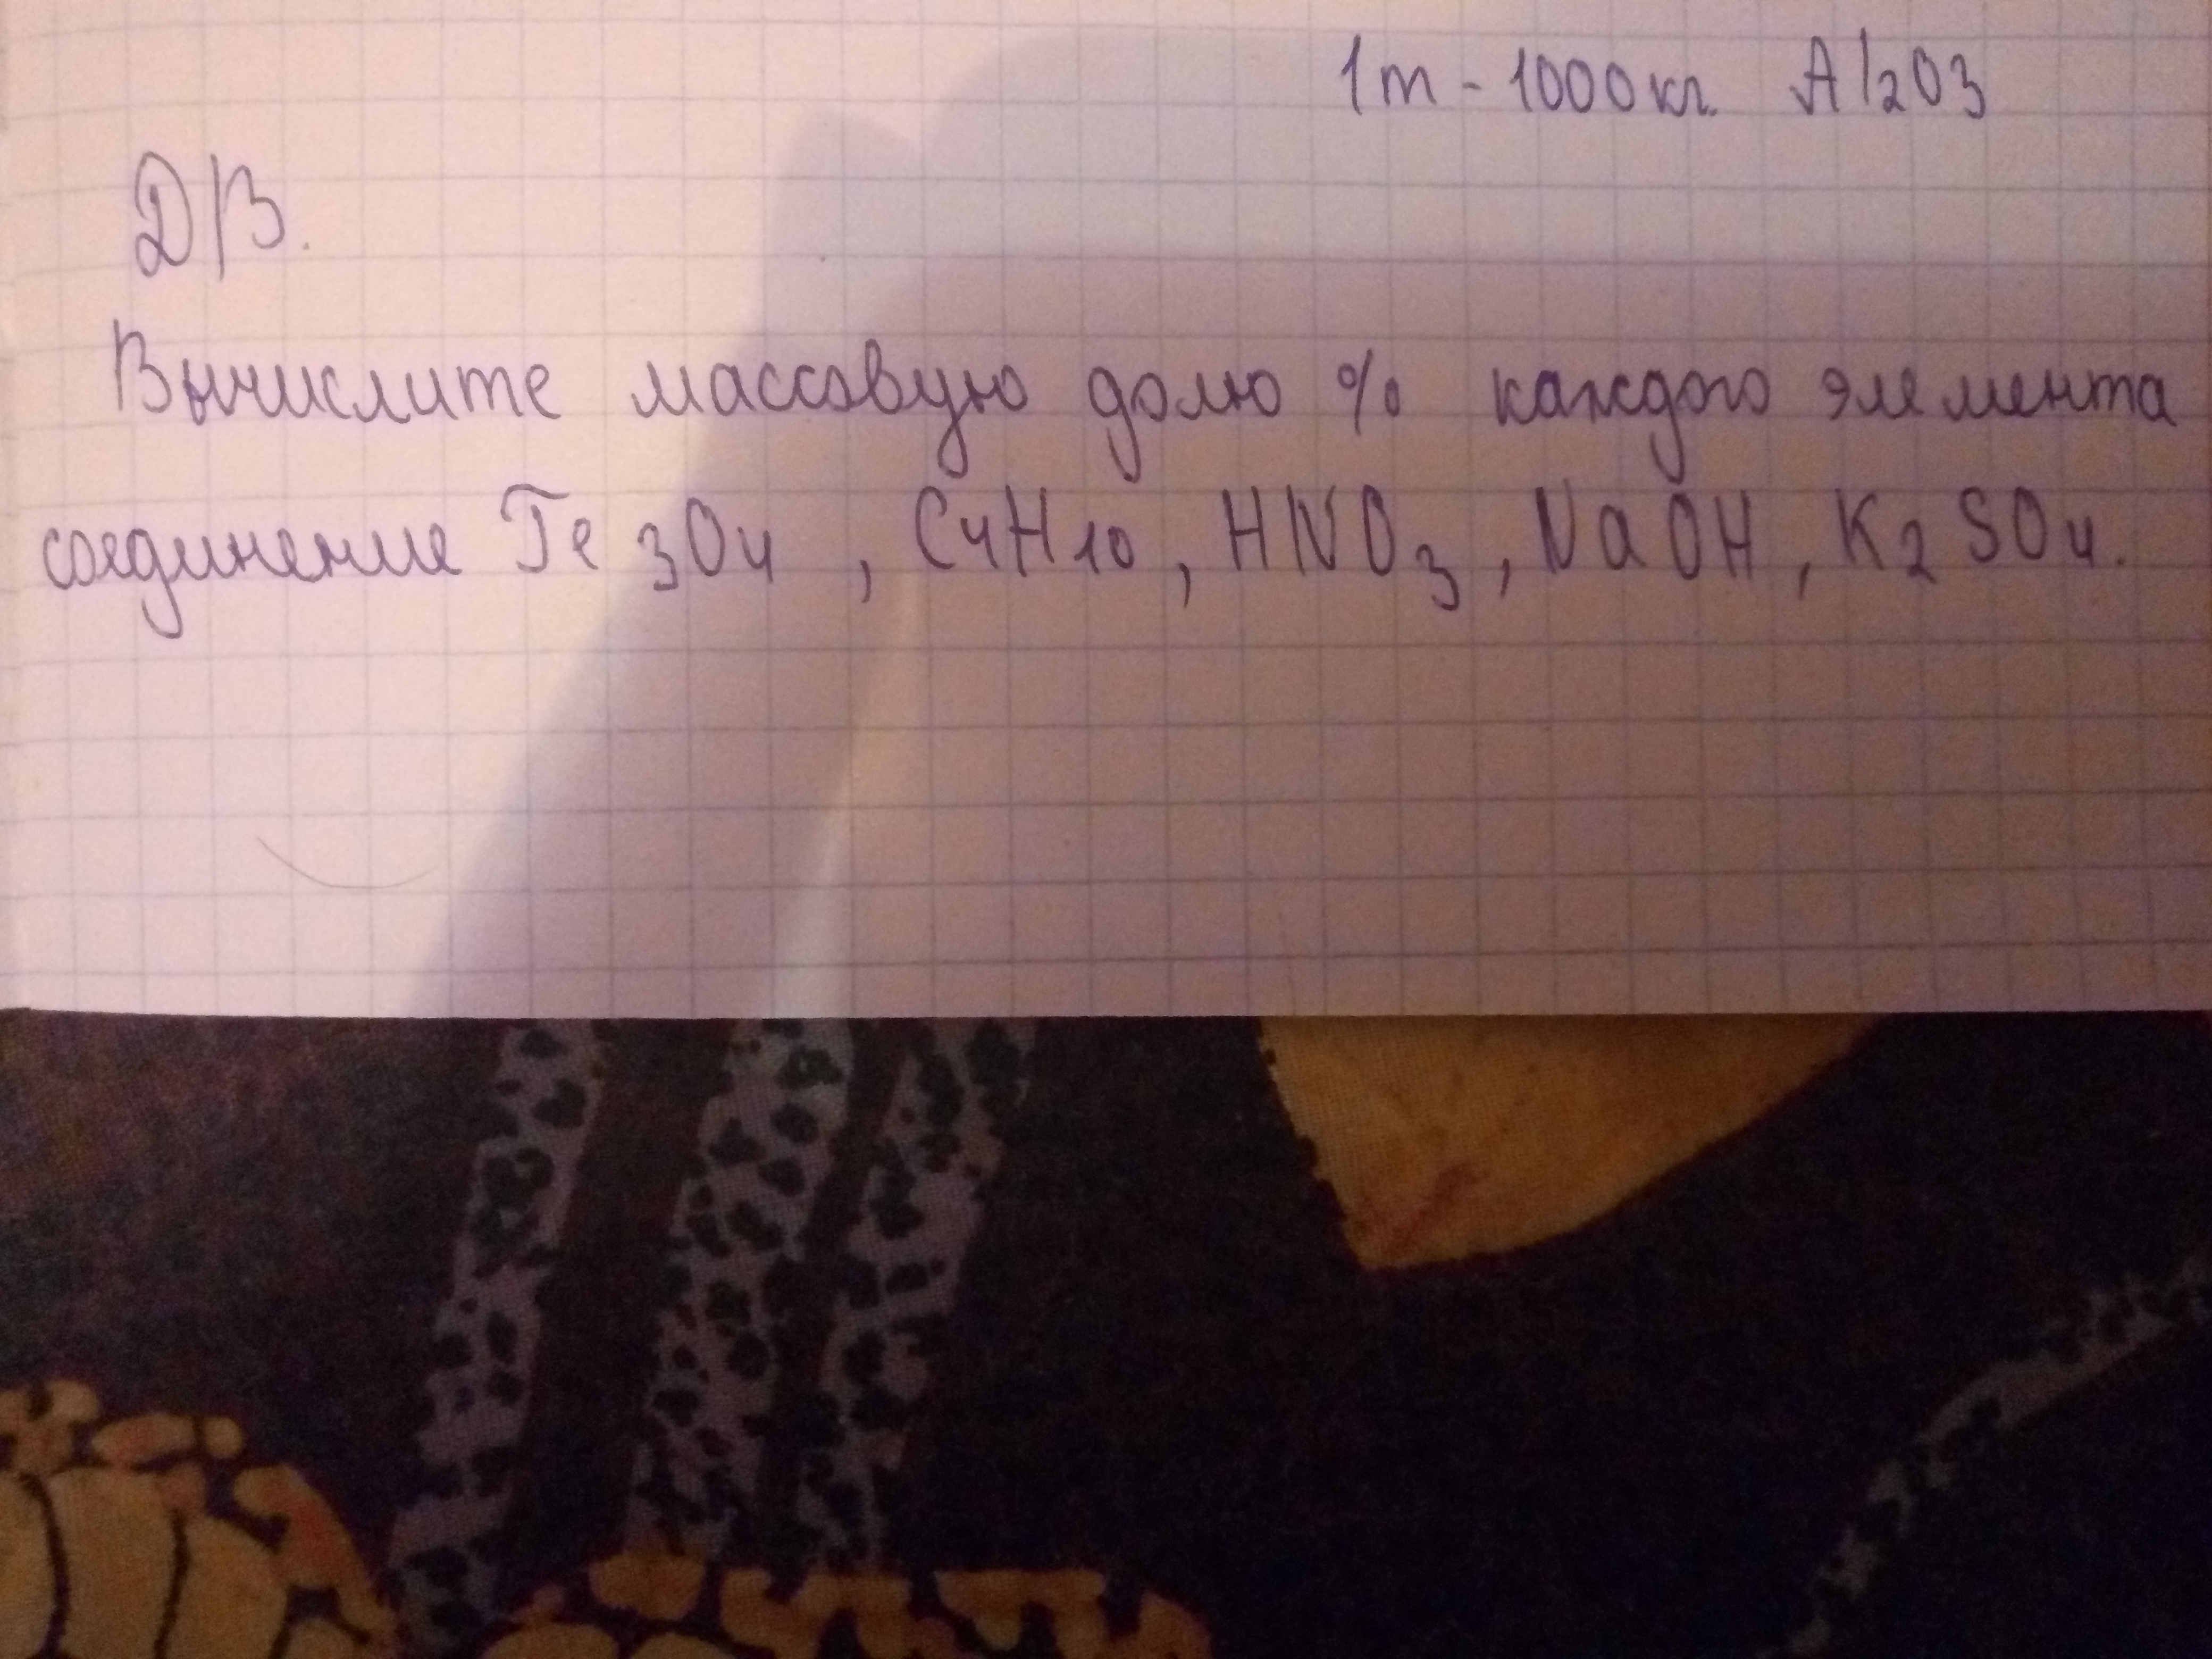 1т - 1000кг. Al2O3
Д/З.
Вычислите массовую долю % каждого элемента
соединение Fe3O4, C4H10, HNO3, NaOH, K2SO4.